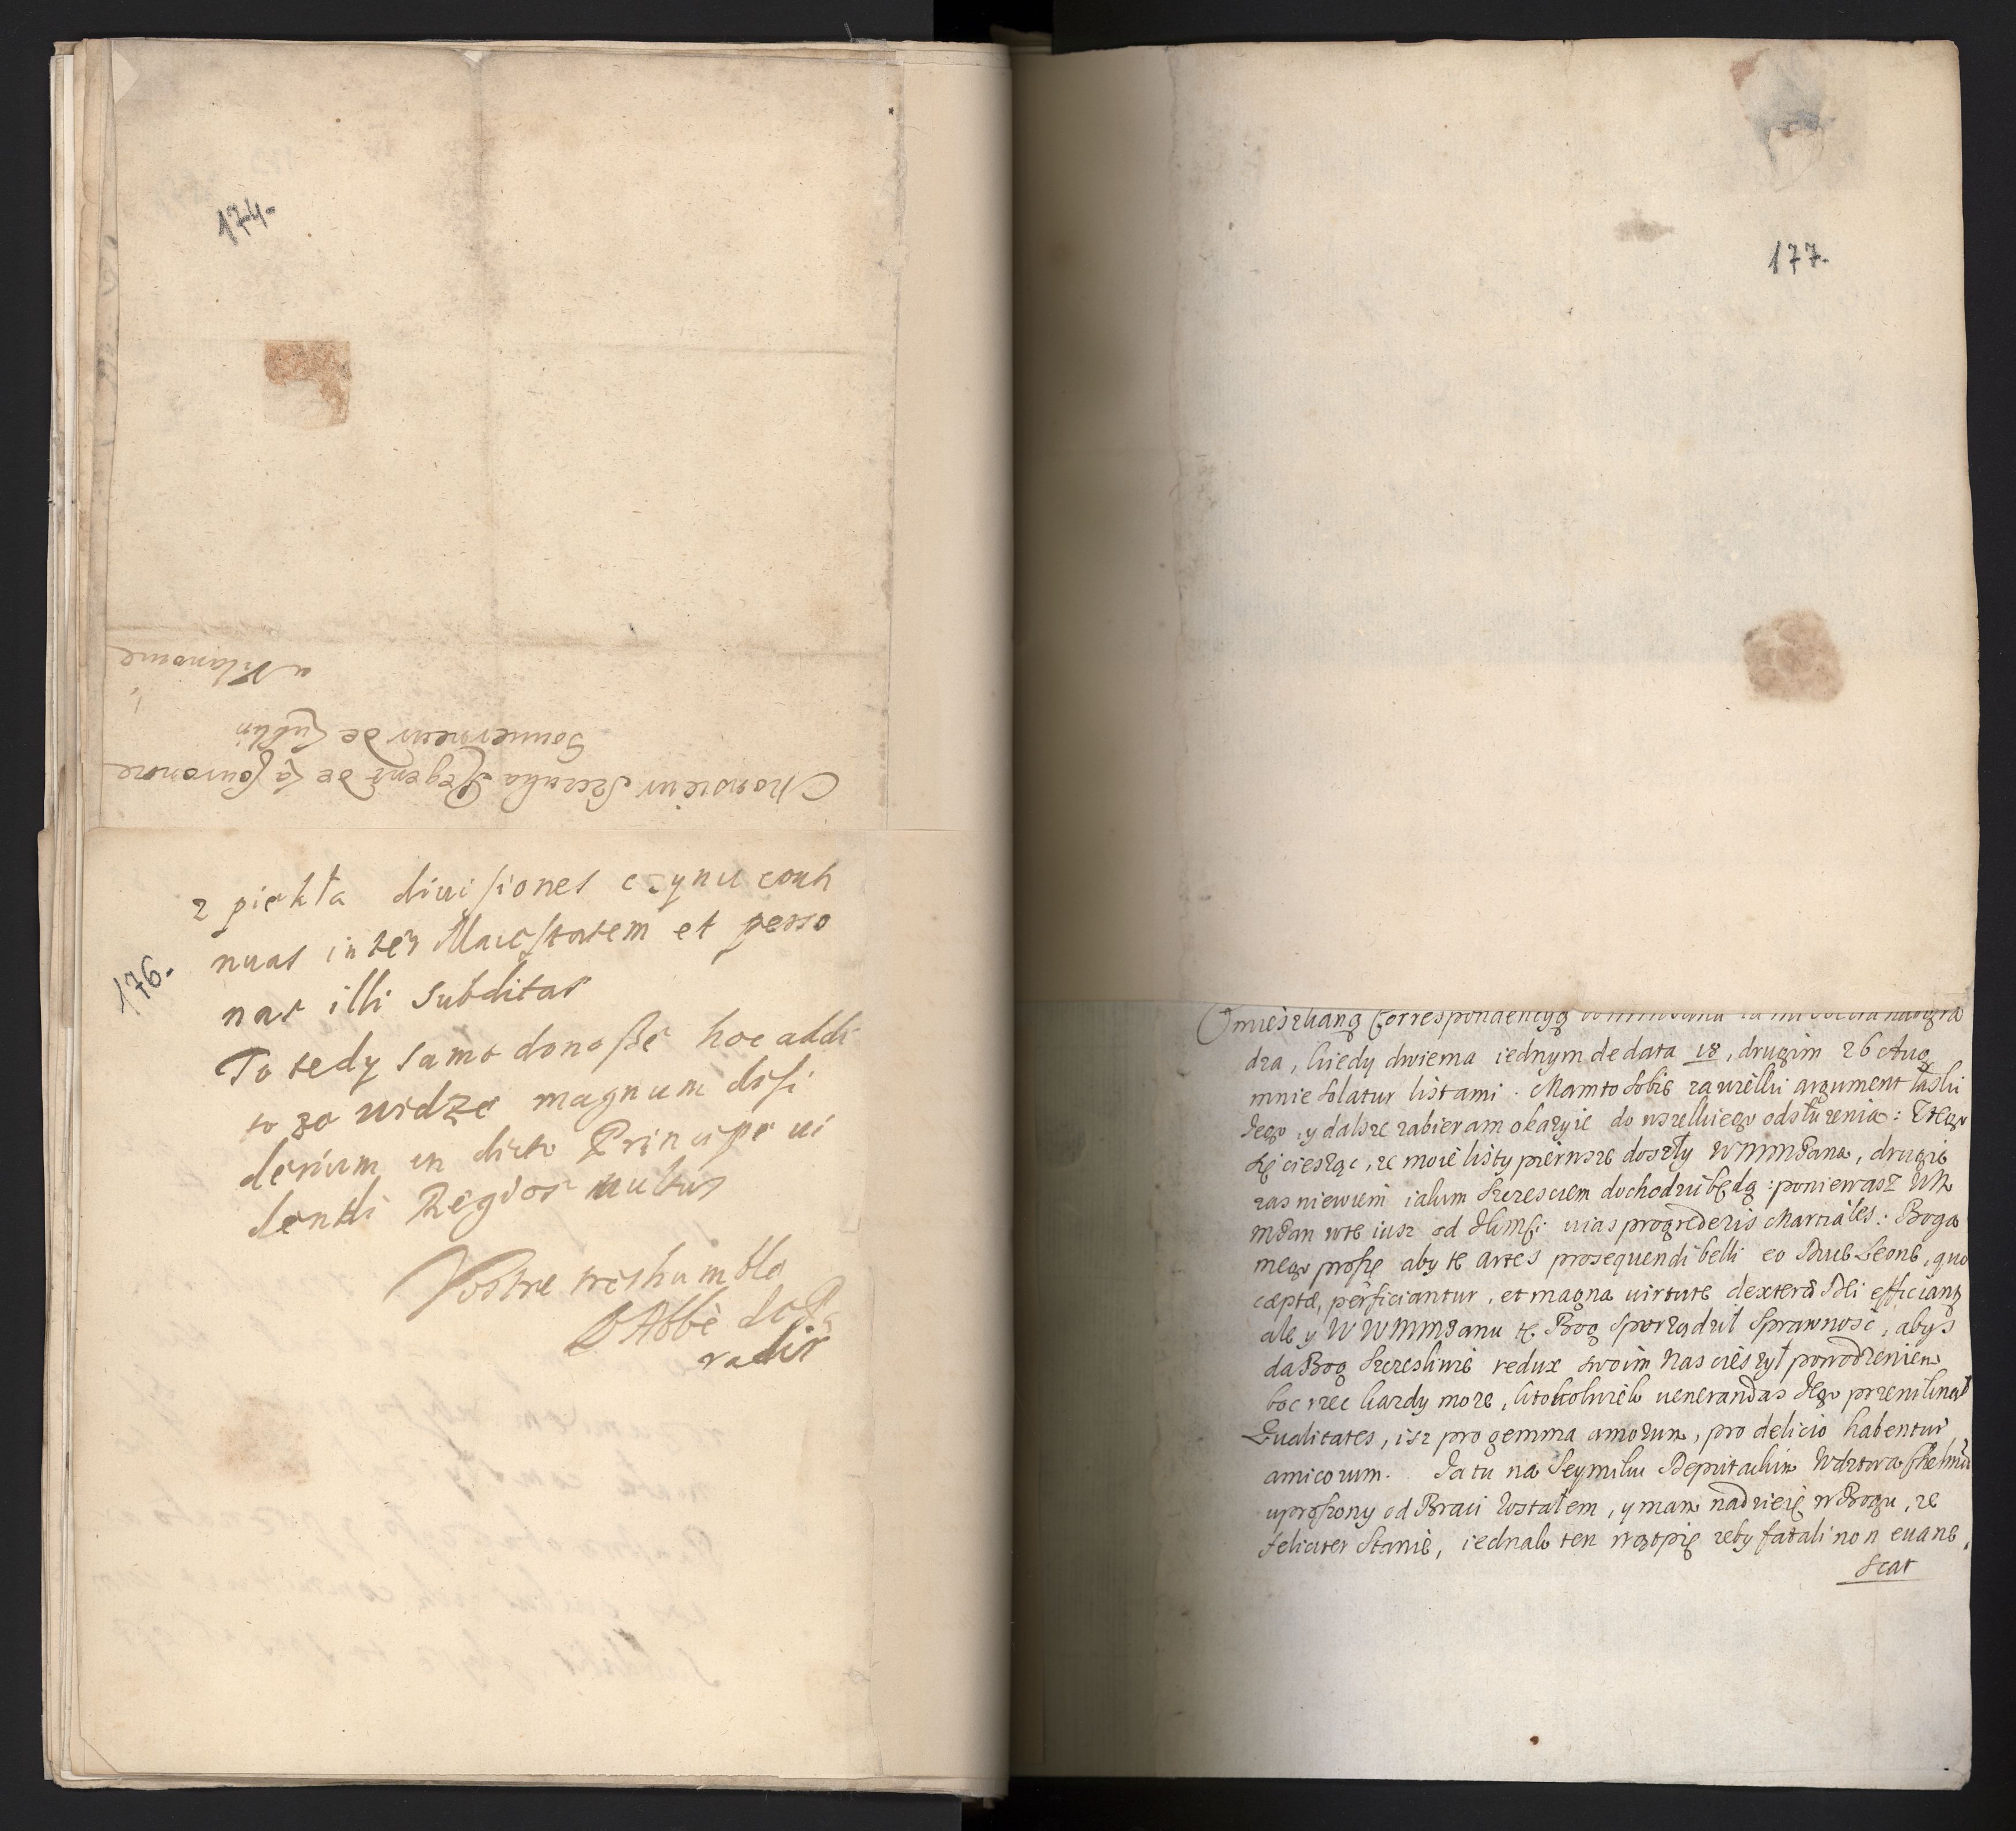 174.
Monsieur Szczuka Regent de la Couronne
Gouverneur de Lublin
a Vilanowe
176.
z piekła diuisiones czynu conti
nuas inter Maiestatem et perso
nas illi subditas
To tedy samo donoszę hoc addi
to ze widzę magnum desi
derium in dicto Principe vi
dendi Regios vultus
Vostre tres humble
L'Abbè de
177.
Omieszkaną Correspondencyą
dza, kiedy dwiema iednym de data 18, drugim 26 Aug
mnie solatur listami. Mam to sobie za wielki argument łaski
Jego, y dalsze zabieram okazyie do wszelkiego odsłużenia: Z tego
się ciesząc, że moie listy pierwsze doszły WMMPana, drugie
zas niewiem iakim szczesciem dochodzić będą: poniewasz WM
MPan wte iusz od vias progrederis Martiales: Boga
mego proszę aby te artes prosequendi belli eo Duce Leone, quo
cæptæ, perficiantur, et magna virtute dextera Dei efficiant
ale y W WMMPanu tę Bog sporządził sprawnosc, abys
da Bog szczesliwie redux swoim nas cieszył powodzeniem
boc rzec kazdy moze, ktokolwiek venerandas Jego przeniknął
Qualitates, isz pro gemma amorum, pro delicio habentur
amicorum. Ja tu na Seymiku Deputackim
uproszony od Braci zostałem, y mam nadzieię w Bogu, ze
feliciter stanie, iednak ten wątpię zeby fatali non euane,
scat